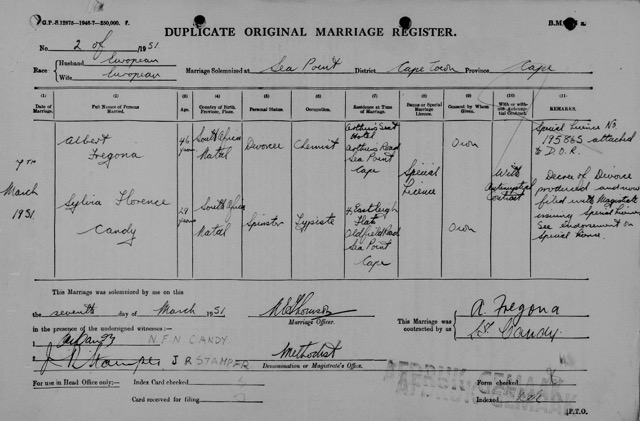 G.P.-S.12875—1946-7—250,000. F.
B.M.
DUPLICATE ORIGINAL MARRIAGE REGISTER.
No. 2 of 1951
Race Husband European
Wife European
Marriage Solemnized at Sea Point District Cape Town Province Cape
(1) (2) (3) (4) (5) (6) (7) (8) (9) (10) (11)
Date of Marriage. Full Names of Persons Married. Age. Country of Birth, Province, Place. Personal Status. Occupation. Residence at Time of Marriage. Banns or Special Marriage Licence. Consent by Whom Given. With or without Antenuptial Contract. REMARKS.
7th March 1951
Albert Fregona
46 years
South Africa Natal
Divorcee
Chemist
Arthur's Seat Hotel
Arthurs Road
Sea Point
Cape
Special Licence
Own
With Antenuptial Contract
Special Licence No.
195865 attached
to D.O.R.
Sylvia Florence Candy
29 years
South Africa Natal
Spinster
Typiste
4, Eastleigh Flats
Oldfield Road
Sea Point
Cape
Own
Decree of Divorce
produced and now
filed with Magistrate
issuing Special Licence
See endorsement on
Special Licence.
This Marriage was solemnized by me on this
seventh day of March 1951
Marriage Officer.
This Marriage was contracted by us
A. Fregona
S.F. Candy
in the presence of the undersigned witnesses :—
1 N.F.N. CANDY
2 J R Stamper J R STAMPER
Methodist
Denomination or Magistrate's Office.
For use in Head Office only :—
Index Card checked
Form checked
Card received for filing
Indexed
P.T.O.